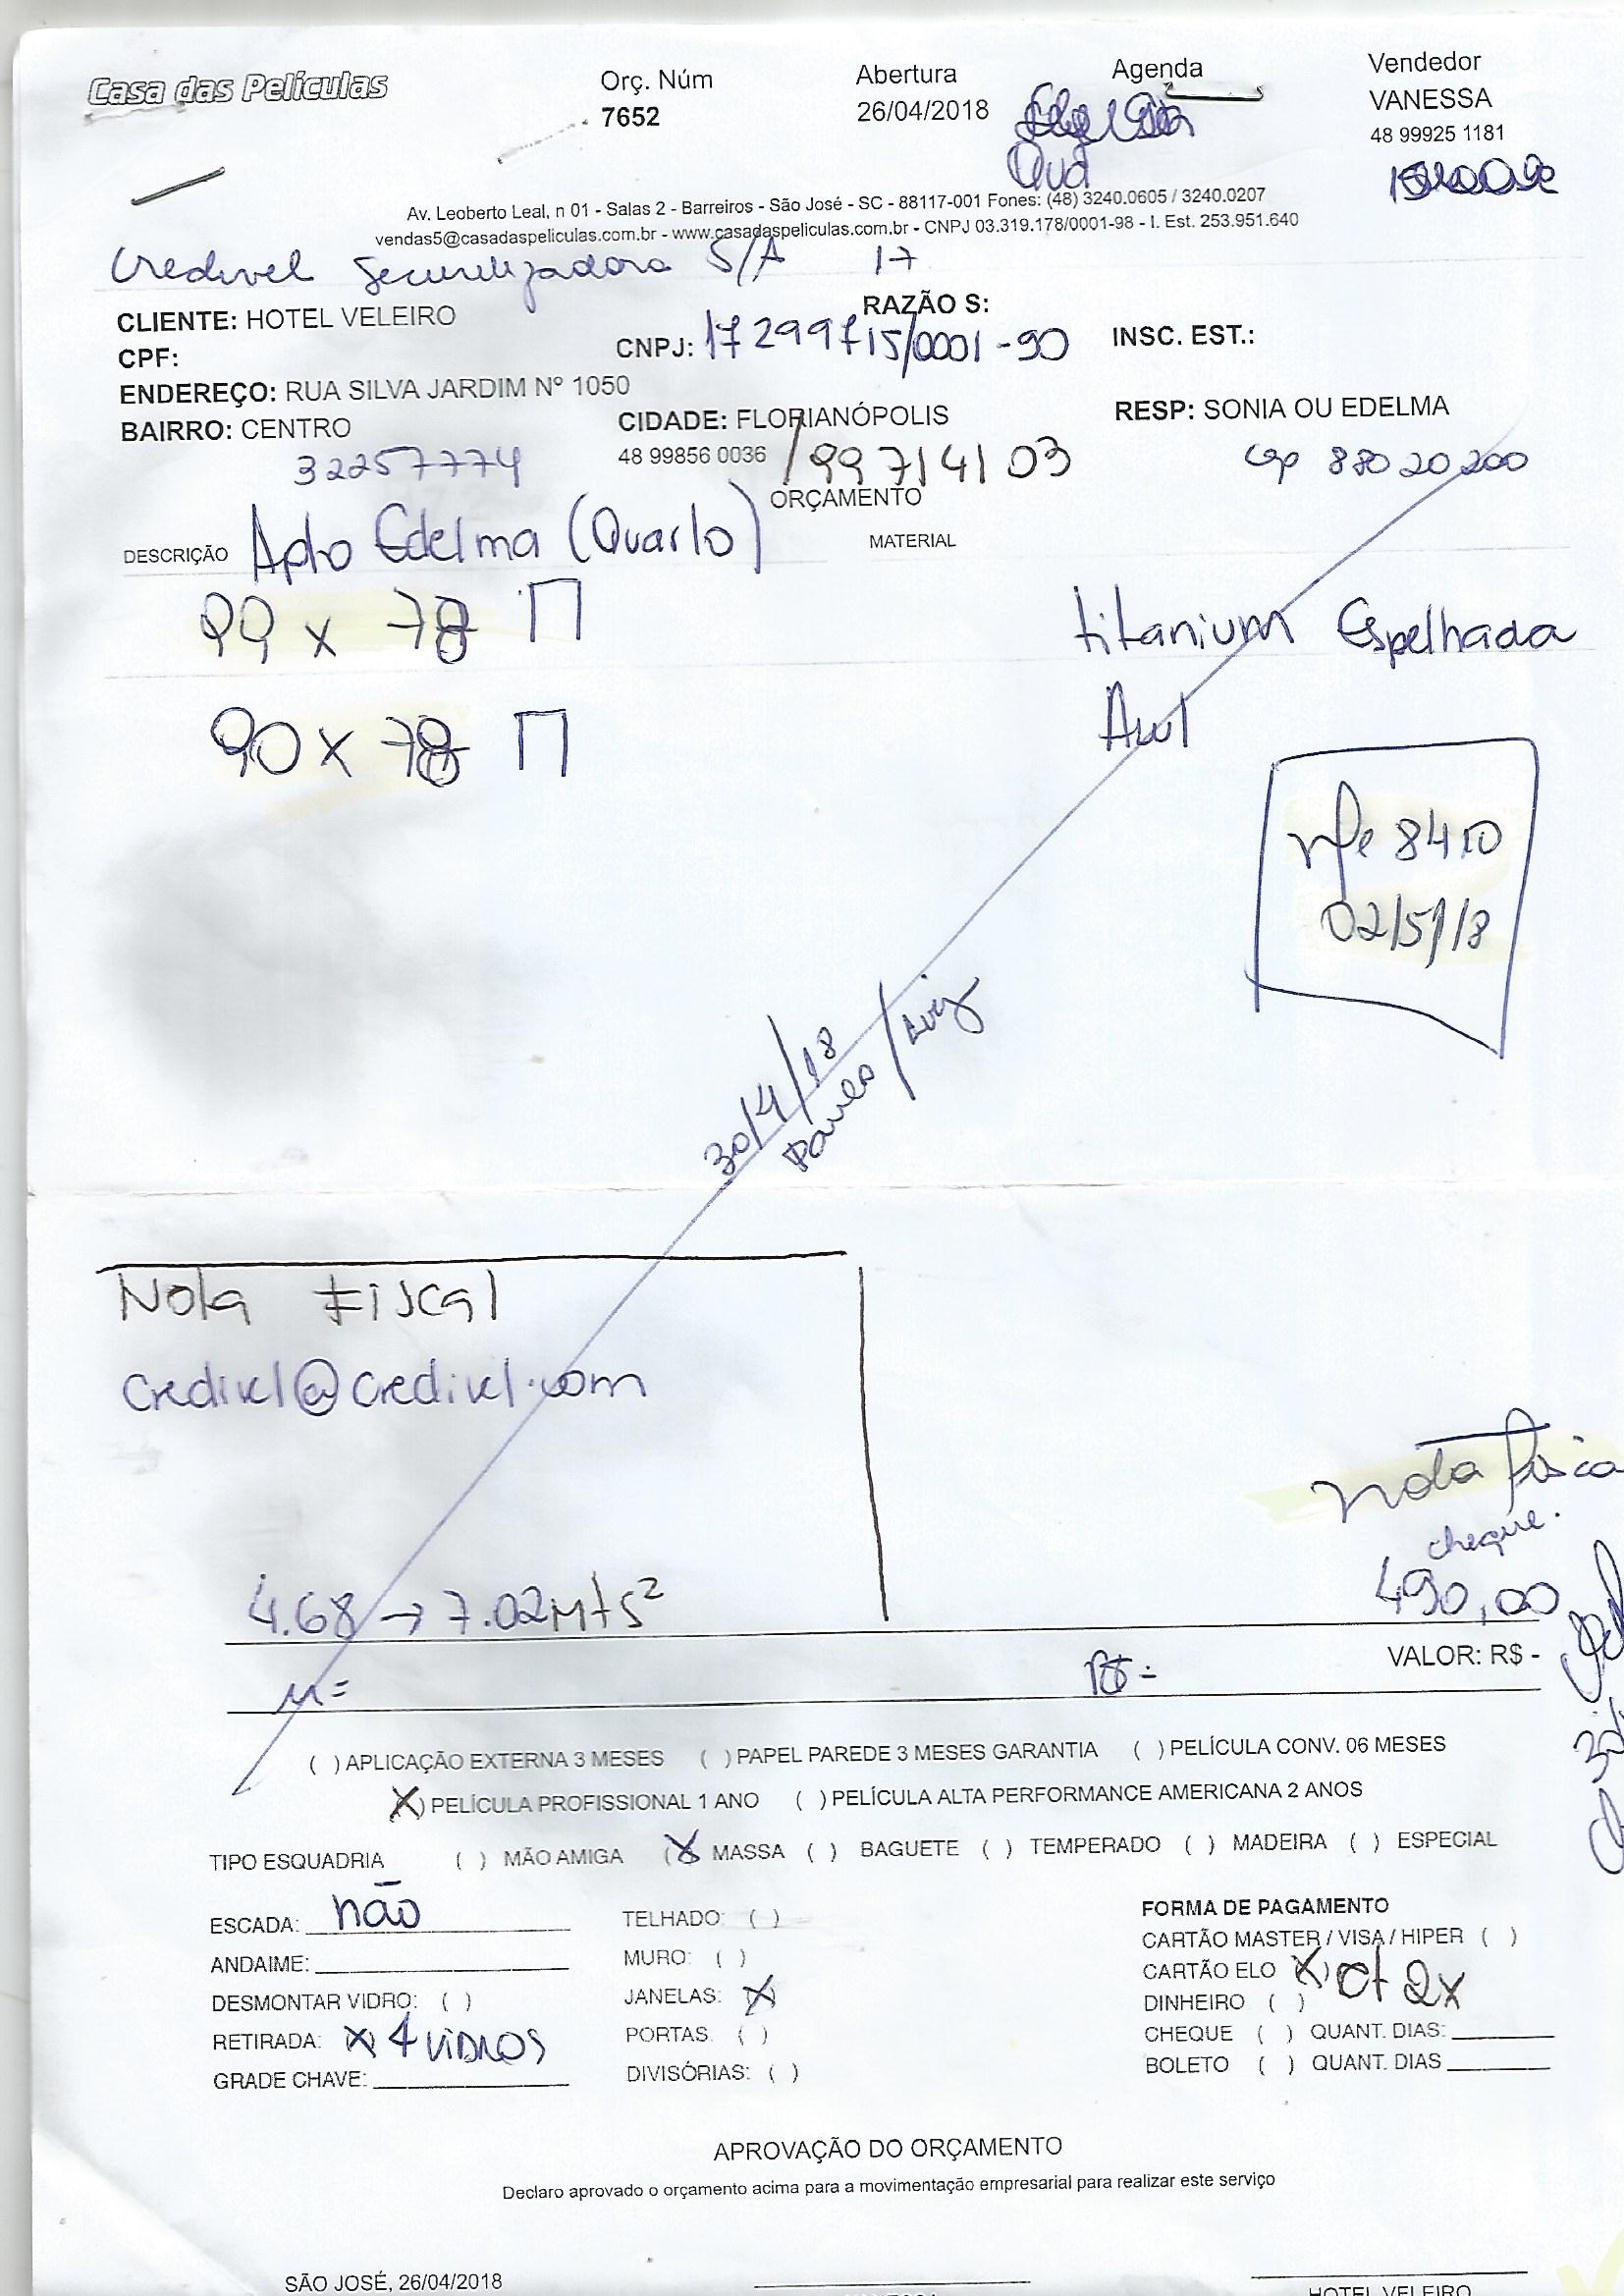 Casa das Películas
Orç. Núm
7652
Abertura
26/04/2018
Agenda
Qua
Vendedor
VANESSA
48 99925 1181
Av. Leoberto Leal, n 01 - Salas 2 - Barreiros - São José - SC - 88117-001 Fones: (48) 3240.0605 / 3240.0207
vendas5@casadaspeliculas.com.br - www.casadaspeliculas.com.br - CNPJ 03.319.178/0001-98 - I. Est. 253.951.640
Credivel Securitizadora S/A 17
CLIENTE: HOTEL VELEIRO
RAZÃO S:
CPF:
CNPJ: 17299715/0001-90
INSC. EST.:
ENDEREÇO: RUA SILVA JARDIM Nº 1050
BAIRRO: CENTRO
CIDADE: FLORIANÓPOLIS
RESP: SONIA OU EDELMA
32257774
48 99856 0036 / 99714103
cep 88020200
ORÇAMENTO
DESCRIÇÃO Apto Edelma (Quarto)
MATERIAL
99 x 78
titanium Espelhada
90 x 78
Azul
nfe 8410
02/5/18
30/4/18
/ Luiz
Nota Fiscal
credivel@credivel.com
nota física
cheque.
4.68 → 7.02 Mts²
490,00
VALOR: R$ -
M=
( ) APLICAÇÃO EXTERNA 3 MESES ( ) PAPEL PAREDE 3 MESES GARANTIA ( ) PELÍCULA CONV. 06 MESES
(X) PELÍCULA PROFISSIONAL 1 ANO ( ) PELÍCULA ALTA PERFORMANCE AMERICANA 2 ANOS
TIPO ESQUADRIA ( ) MÃO AMIGA (X) MASSA ( ) BAGUETE ( ) TEMPERADO ( ) MADEIRA ( ) ESPECIAL
ESCADA: não
TELHADO: ( )
FORMA DE PAGAMENTO
ANDAIME:
MURO: ( )
CARTÃO MASTER / VISA / HIPER ( )
DESMONTAR VIDRO: ( )
JANELAS: (X)
CARTÃO ELO (X) ct 2x
DINHEIRO ( )
RETIRADA: (X) 4 vidros
PORTAS: ( )
CHEQUE ( ) QUANT. DIAS:
GRADE CHAVE:
DIVISÓRIAS: ( )
BOLETO ( ) QUANT. DIAS
APROVAÇÃO DO ORÇAMENTO
Declaro aprovado o orçamento acima para a movimentação empresarial para realizar este serviço
SÃO JOSÉ, 26/04/2018
HOTEL VELEIRO